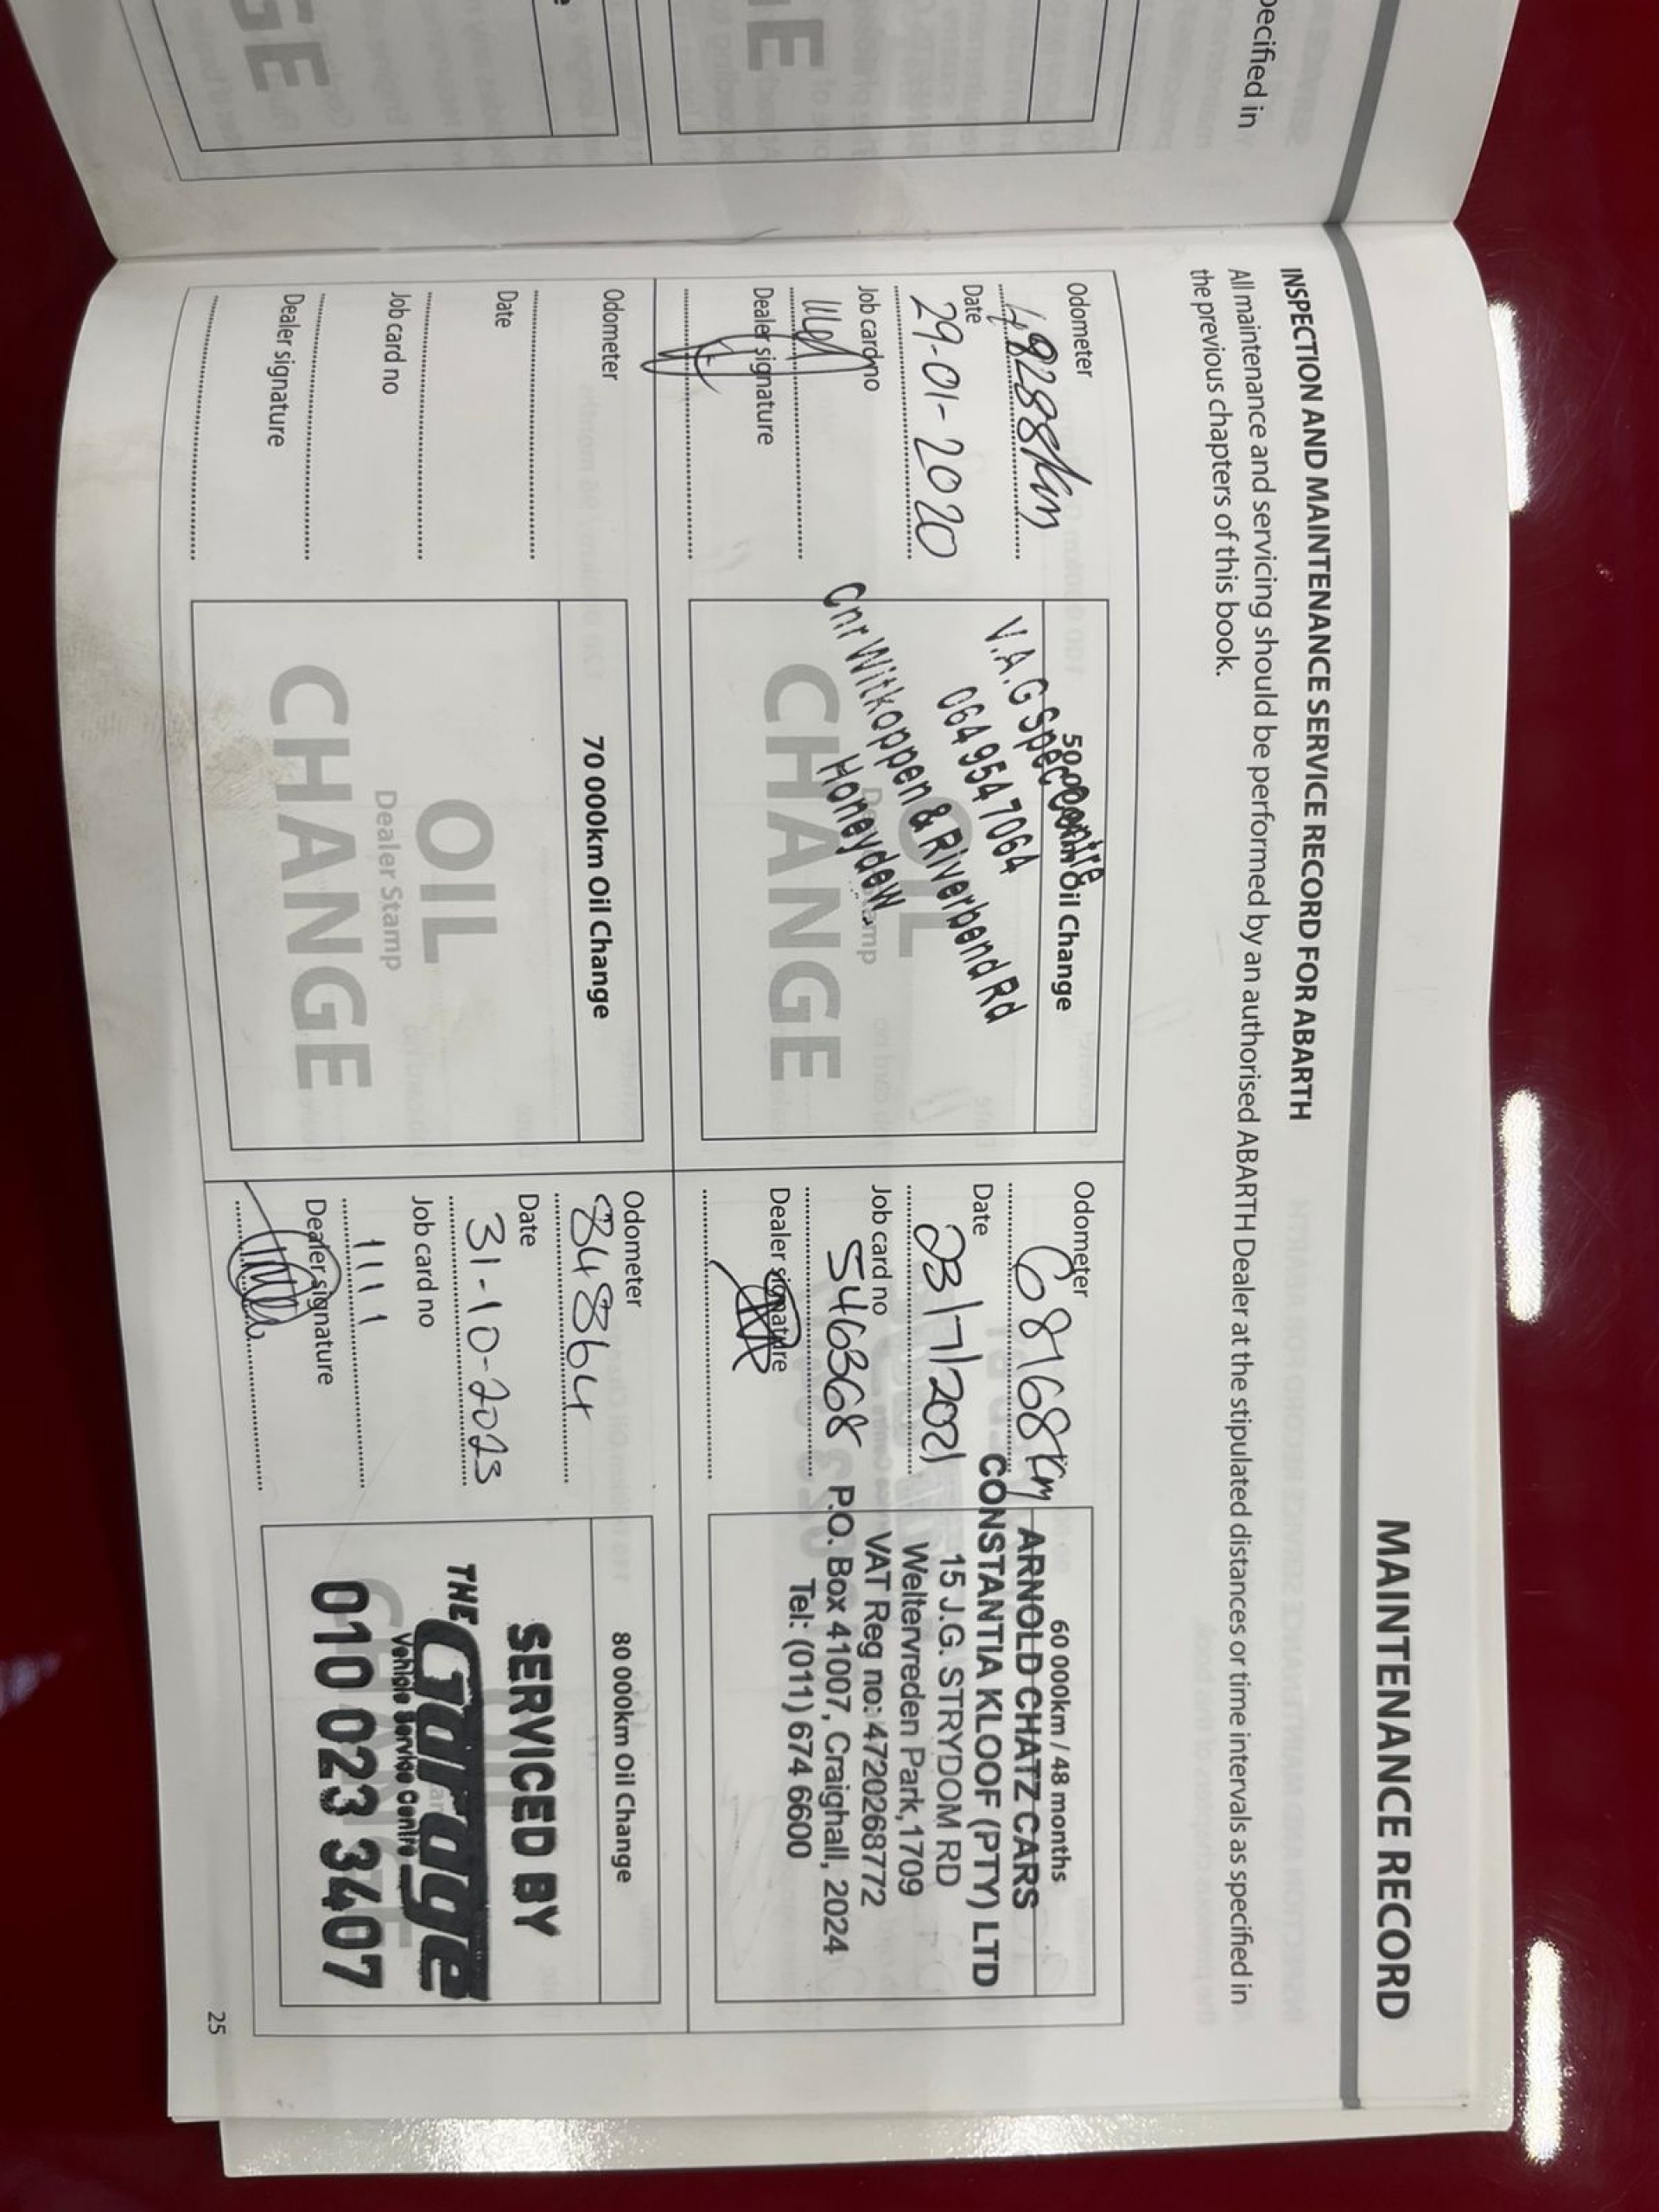 pecified in
GE
GE
MAINTENANCE RECORD
INSPECTION AND MAINTENANCE SERVICE RECORD FOR ABARTH
All maintenance and servicing should be performed by an authorised ABARTH Dealer at the stipulated distances or time intervals as specified in
the previous chapters of this book.
Odometer
48288km
Date
29-01-2020
Job card no
Dealer signature
50 000km Oil Change
V.A.G Spec Centre
064 954 7064
Cnr Witkoppen & Riverbend Rd
Honeydew
OIL
Dealer Stamp
CHANGE
Odometer
68168km
Date
03/7/2021
Job card no
546368
Dealer signature
60 000km / 48 months
ARNOLD CHATZ CARS
CONSTANTIA KLOOF (PTY) LTD
15 J.G. STRYDOM RD
Weltervreden Park, 1709
VAT Reg no: 4720268772
P.O. Box 41007, Craighall, 2024
Tel: (011) 674 6600
Odometer
Date
Job card no
Dealer signature
70 000km Oil Change
OIL
Dealer Stamp
CHANGE
Odometer
84864
Date
31-10-2023
Job card no
1111
Dealer signature
80 000km Oil Change
SERVICED BY
THE Garage
Vehicle Service Centre
010 023 3407
25